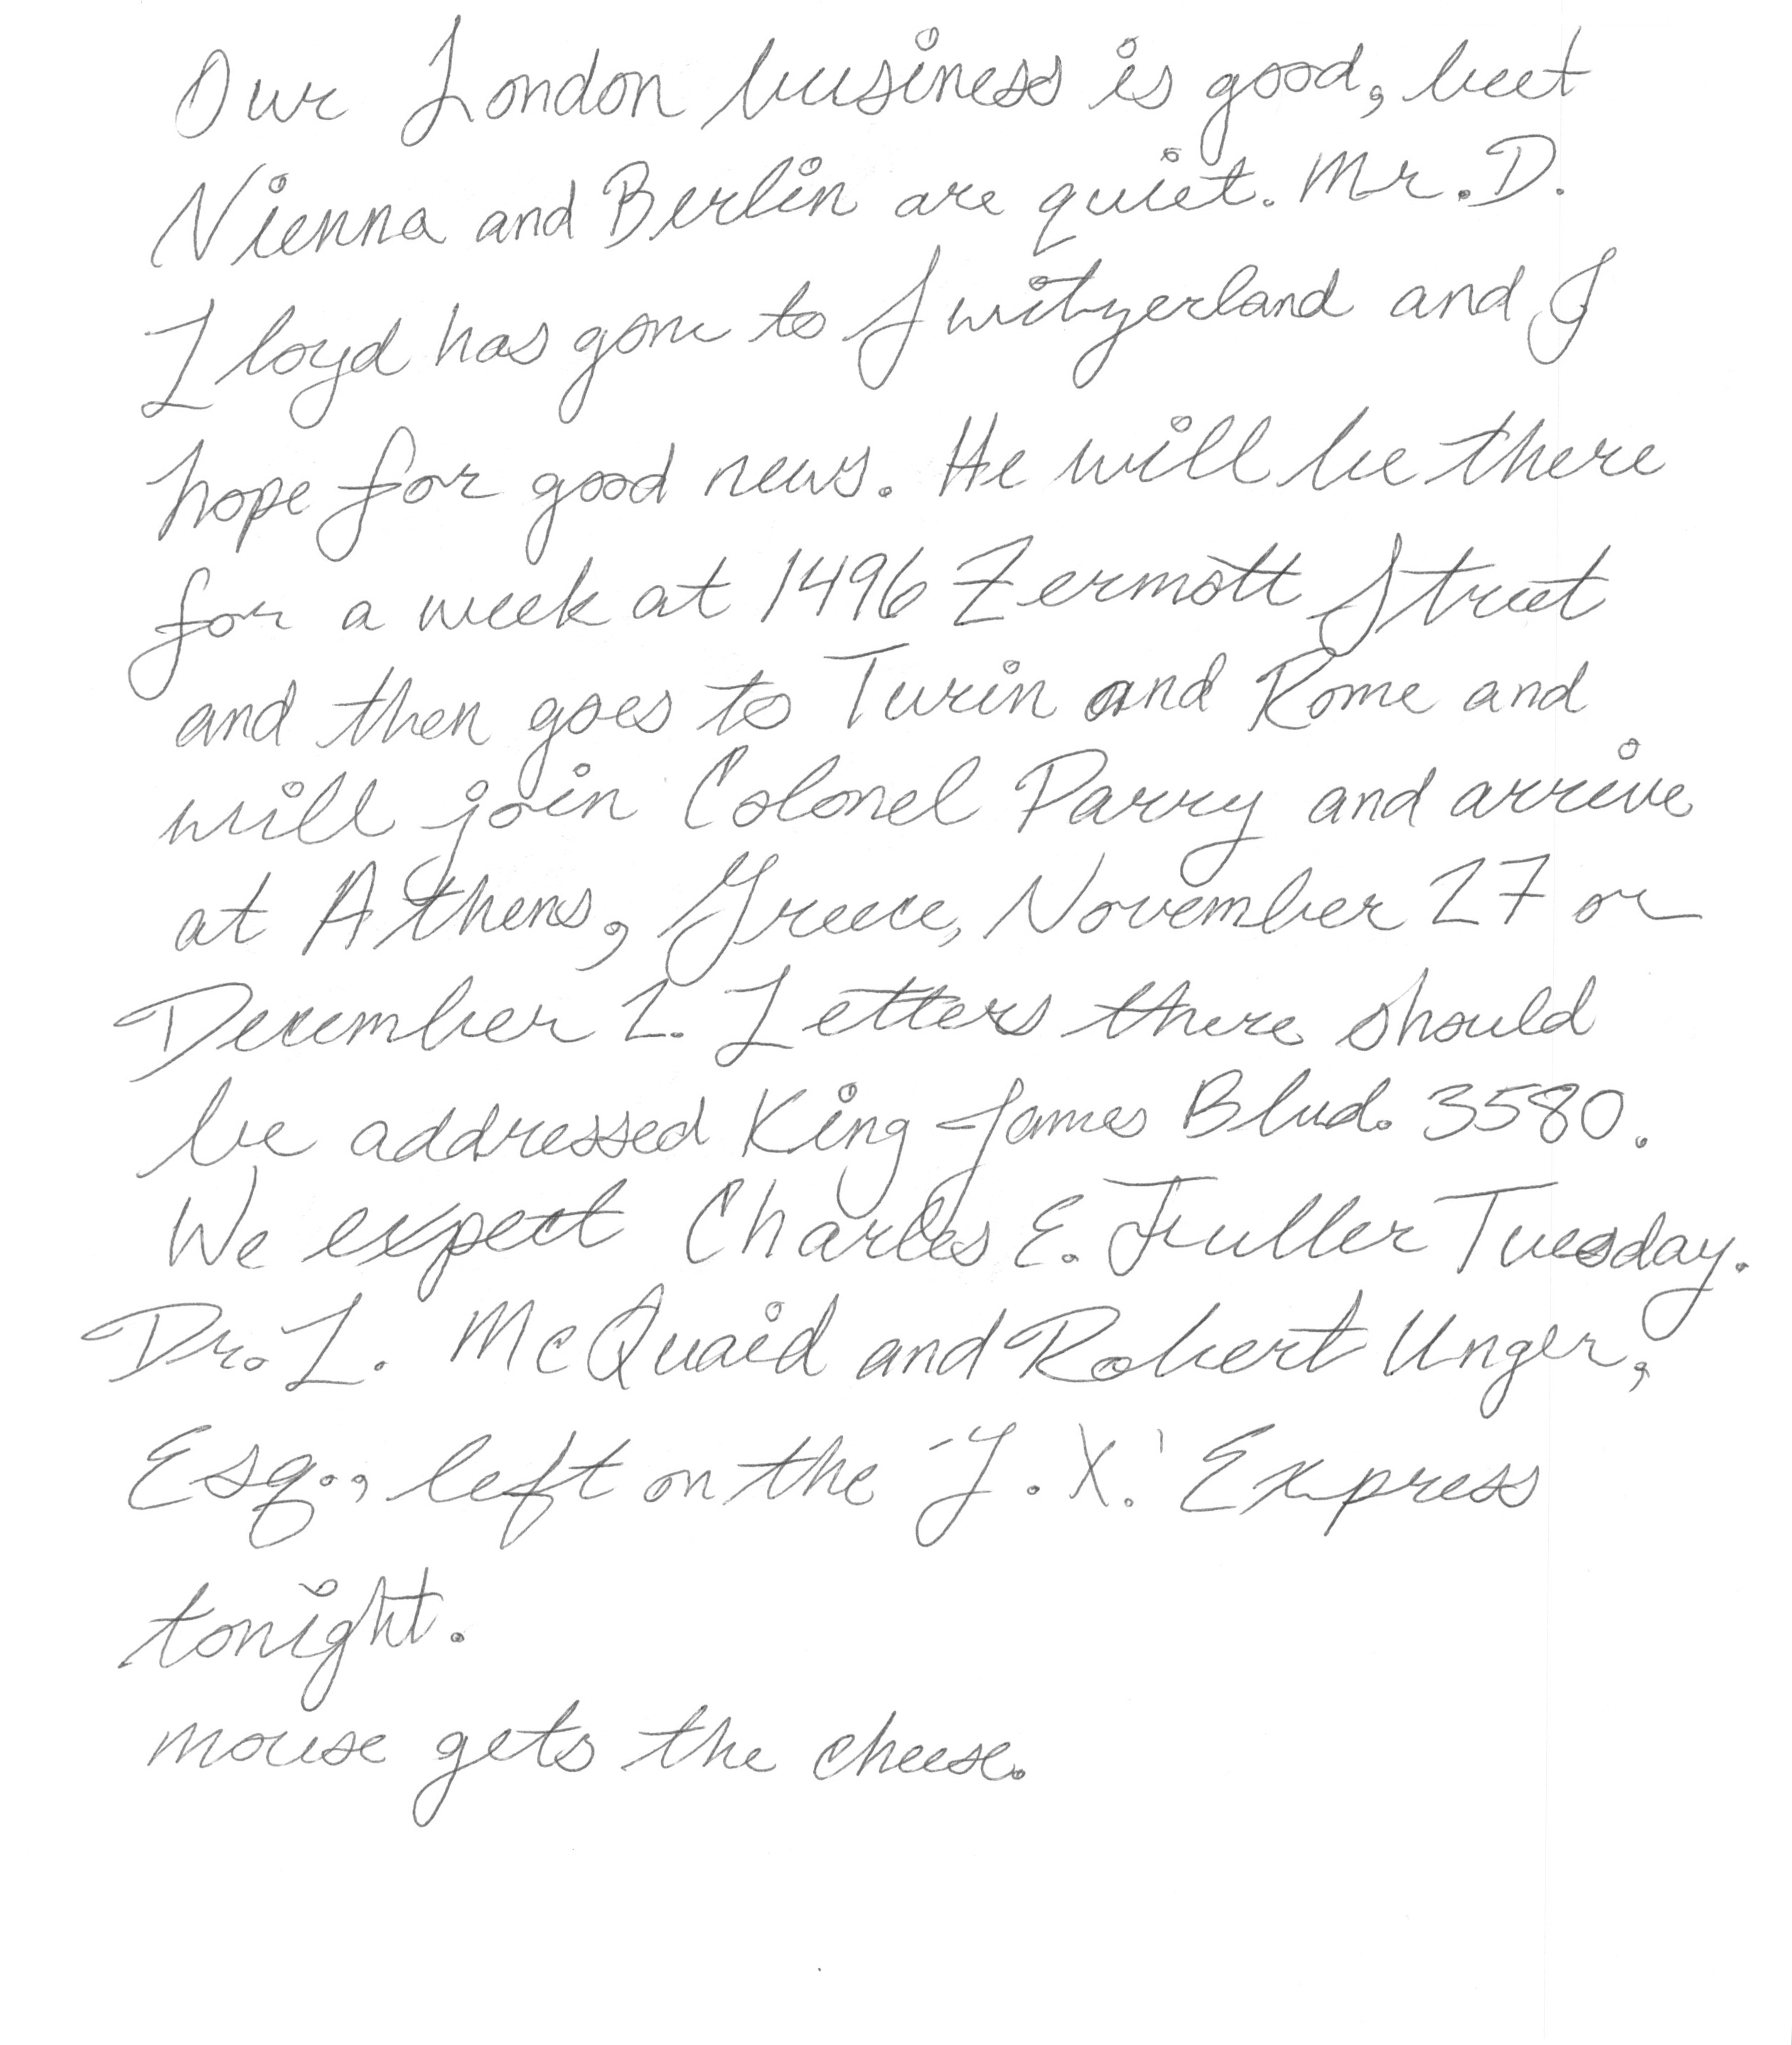 Our London business is good, but
Vienna and Berlin are quiet. Mr. D.
Lloyd has gone to Switzerland and I
hope for good news. He will be there
for a week at 1496 Zermott Street
and then goes to Turin and Rome and
will join Colonel Parry and arrive
at Athens, Greece, November 27 or
December 2. Letters there should
be addressed King James Blvd. 3580.
We expect Charles E. Fuller Tuesday.
Dr. L. McQuaid and Robert Unger,
Esq., left on the 'Y.X.' Express
tonight.
mouse gets the cheese.